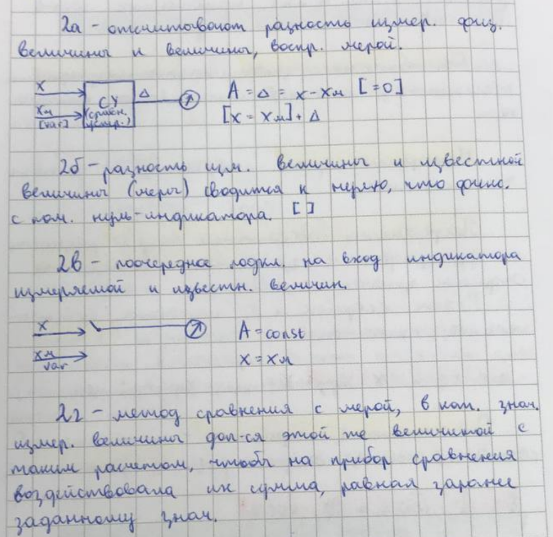 2а - отсчитывают разность измер. физ.
величины и величины, воспр. мерой.
x
xм
[var]
СУ
(сравн.
устр.)
Δ
A = Δ = x - xм [=0]
[x = xм] + Δ
2б - разность изм. величины и известной
величины (меры) сводится к нулю, что фикс.
с пом. нуль-индикатора. [ ]
2в - поочередное подкл. на вход индикатора
измеряемой и известн. величин.
x
xм
var
A = const
x = xм
2г - метод сравнения с мерой, в кот. знач.
измер. величины доп-ся этой же величиной с
таким расчетом, чтобы на прибор сравнения
воздействовала их сумма, равная заранее
заданному знач.